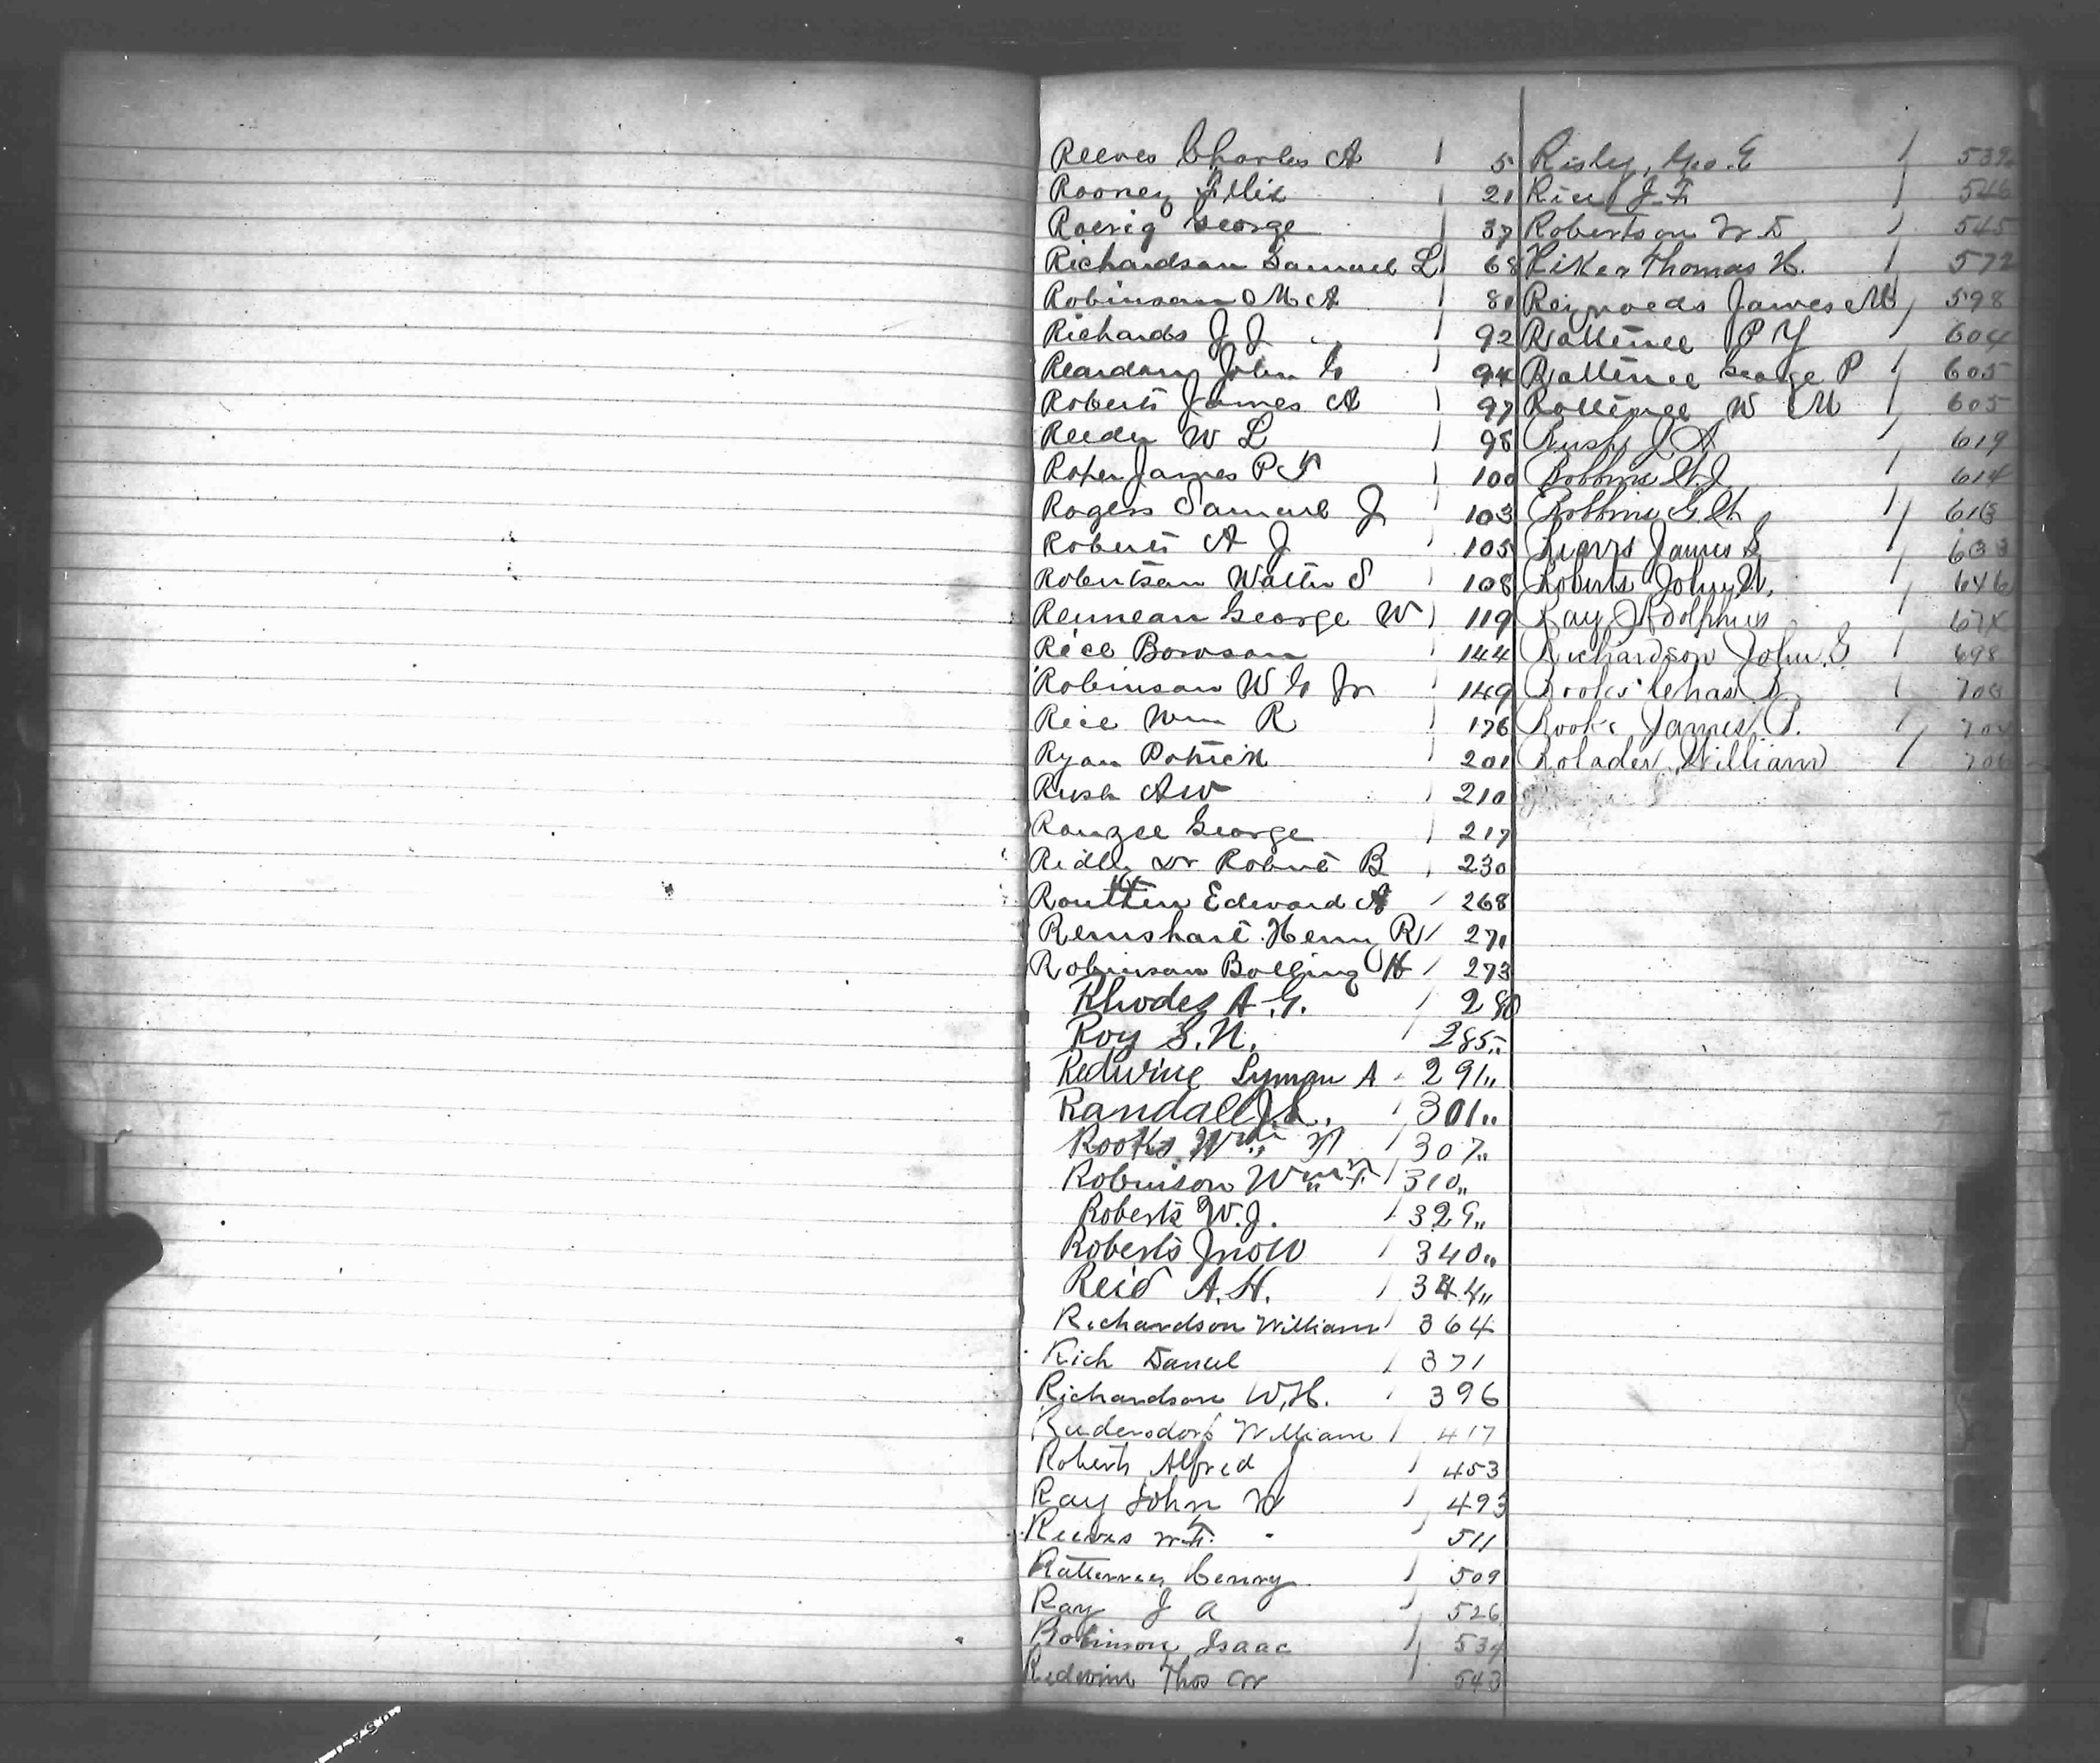 Reeves Charles A / 5
Rooney / 21
Roerig George / 37
Richardson Samuel L / 68
Robinson M A / 81
Richards J J / 92
Reardon John G / 94
Roberts James A / 97
Reeder W L / 98
Roper James P / 100
Rogers Samuel J / 103
Roberts A J / 105
Robertson Walter S / 108
Renneau George W / 119
Rice Bowson / 144
Robinson W G Jr / 149
Rice Wm R / 176
Ryan Patrick / 201
Rush A W / 210
Rouzee George / 217
Ridley Dr Robert B / 230
Routten Edward A / 268
Remshart Henry R / 271
Robinson Bolling H / 273
Rhodes A. G. / 280
Roy S. N. / 285"
Redwine Lyman A - 291"
Randall J. L. / 301"
Rooks Wm / 307"
Robinson Wm F. / 310"
Roberts W. J. / 329"
Roberts Jno W / 340"
Reid A. H. / 344"
Richardson William / 364
Rich Daniel / 371
Richardson W. H. / 396
Rudersdorf William / 417
Roberts Alfred J / 453
Ray John W / 493
Reeves W F. / 511
Ratteree Henry / 509
Ray J A / 526
Robinson Isaac / 534
Redwine Thos W / 543
Risley, Geo. E / 539
Rice J. F / 546
Robertson W D / 545
Riker Thomas H. / 572
Reynolds James M / 598
Ratteree P Y / 604
Ratteree George P / 605
Ratteree W M / 605
Rush J A / 619
Robbins W. J. / 614
Robbins G. W. / 618
James S / 633
Roberts John W. / 646
Ray Adolphus / 674
Richardson John S. / 698
Rooks Chas / 703
Rooks James P. / 704
Rolader William / 706